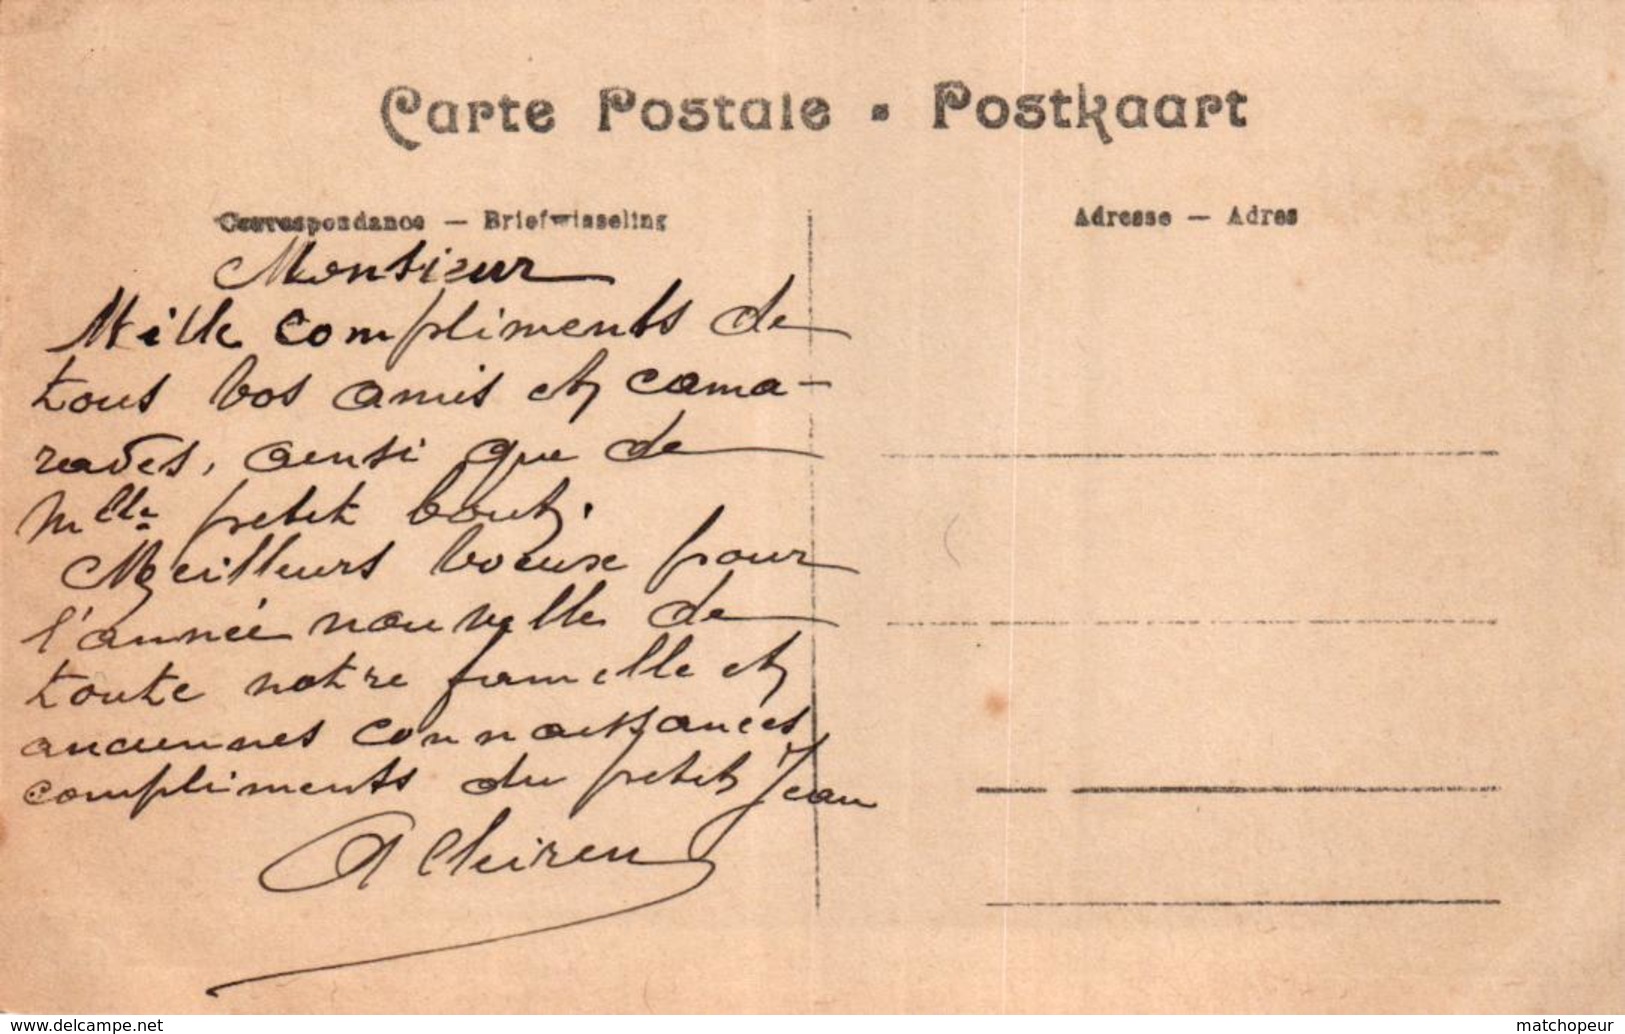 Carte Postale - Postkaart
Correspondance — Briefwisseling
Adresse — Adres
Monsieur
Mille compliments de
tous vos amis et cama-
rades, ainsi que de
Mlle petit bout.
Meilleurs voeux pour
l'année nouvelle de
toute notre famille et
anciennes connaissances
compliments du petit Jean
www.delcampe.net
matchopeur